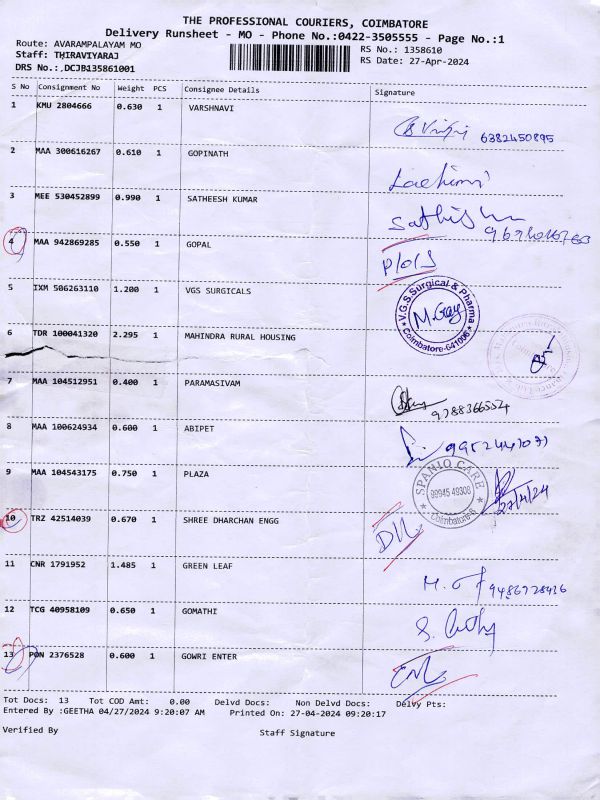 THE PROFESSIONAL COURIERS, COIMBATORE
Delivery Runsheet - MO - Phone No.:0422-3505555 - Page No.:1
Route: AVARAMPALAYAM MO RS No.: 1358610
Staff: THIRAVIYARAJ RS Date: 27-Apr-2024
DRS No.: DCJB135861001
S No Consignment No Weight PCS Consignee Details Signature
1 KMU 2804666 0.630 1 VARSHNAVI
6382450895
2 MAA 300616267 0.610 1 GOPINATH
3 MEE 530452899 0.990 1 SATHEESH KUMAR
Sathish
4 MAA 942869285 0.550 1 GOPAL
5 IXM 506263110 1.200 1 VGS SURGICALS
V.G.S.Surgical & Pharma
Coimbatore-641006
6 TDR 100041320 2.295 1 MAHINDRA RURAL HOUSING
7 MAA 104512951 0.400 1 PARAMASIVAM
9788366554
8 MAA 100624934 0.600 1 ABIPET
9 MAA 104543175 0.750 1 PLAZA
SPANIQ CARE
99945 49308
Coimbatore-6
27/4/24
10 TRZ 42514039 0.670 1 SHREE DHARCHAN ENGG
11 CNR 1791952 1.485 1 GREEN LEAF
9486728436
12 TCG 40958109 0.650 1 GOMATHI
13 PON 2376528 0.600 1 GOWRI ENTER
Tot Docs: 13 Tot COD Amt: 0.00 Delvd Docs: Non Delvd Docs: Delvy Pts:
Entered By :GEETHA 04/27/2024 9:20:07 AM Printed On: 27-04-2024 09:20:17
Verified By Staff Signature